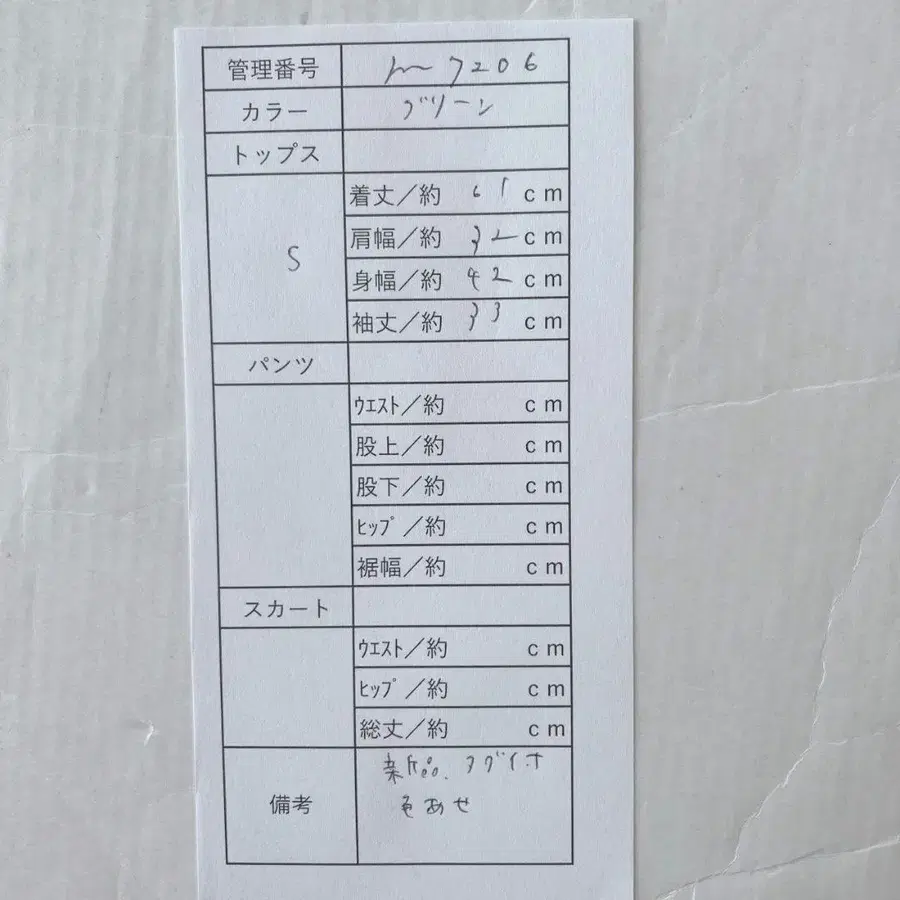 管理番号 m7206
カラー グリーン
トップス
S
着丈／約 61 cm
肩幅／約 32 cm
身幅／約 42 cm
袖丈／約 33 cm
パンツ
ｳｴｽﾄ／約 cm
股上／約 cm
股下／約 cm
ﾋｯﾌﾟ／約 cm
裾幅／約 cm
スカート
ｳｴｽﾄ／約 cm
ﾋｯﾌﾟ／約 cm
総丈／約 cm
備考
新品、タグ付き
色あせ